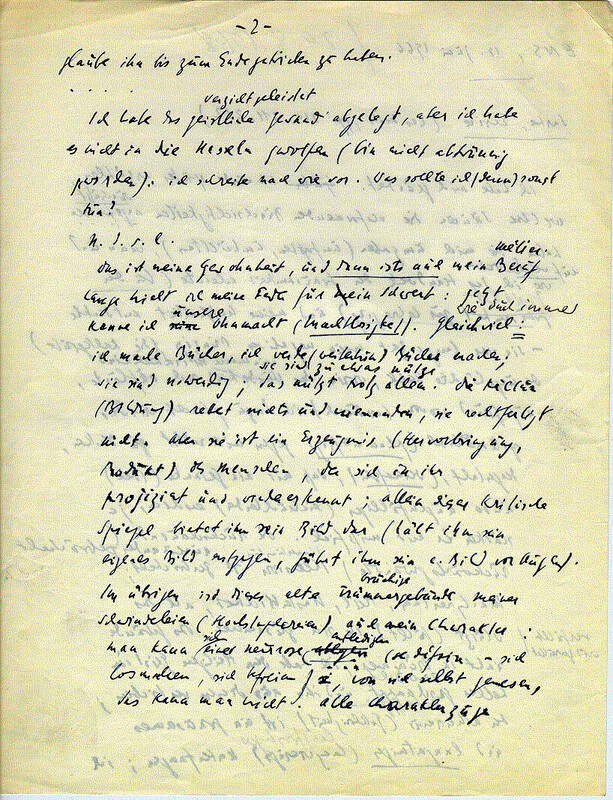 -2-
glaube ihn bis zum Ende getrieben zu haben.
. . . . .
verzicht geleistet
Ich habe das geistliche gewand abgelegt, aber ich habe
es nicht in die Nesseln geworfen (bin nicht abtrünnig
geworden): ich schreibe nach wie vor. Was sollte ich (denn) sonst
tun?
N. d. s. l.
métier.
Das ist meine Gewohnheit, und dann ists auch mein Beruf
Lange hielt ich meine Feder für mein Schwert: jetzt
unsere
kenne ich Ohnmacht (Machtlosigkeit). Gleichviel:
ich mache Bücher, ich werde (weiterhin) Bücher machen;
sie sind zu etwas nütze
sie sind notwendig; das nützt trotz allem. Die Kultur
(Bildung) rettet nichts und niemanden, sie rechtfertigt
nicht. Aber sie ist ein Erzeugnis (Hervorbringung,
Produkt) des Menschen, der sich in ihr
projiziert und wiedererkennt; allein dieser kritische
Spiegel bietet ihm sein Bild dar (hält ihm sein
eigenes Bild entgegen, führt ihm sein e. Bild vor Augen).
brüchige
Im übrigen ist dieses alte Trümmergebäude meiner
Schwindeleien (Hochstapeleien) auch mein Charakter:
sich entledigen
man kann einer neurose (se défaire = sich
losmachen, sich befreien), von sich selbst genesen,
das kann man nicht. Alle Charakterzüge